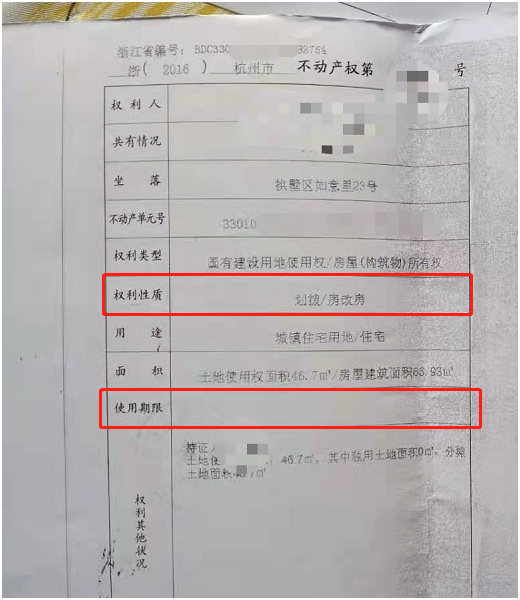 浙江省编号：BDC330 32754
浙（ 2016 ） 杭州市 不动产权第 号
权利人
共有情况
坐落 拱墅区如意里23号
不动产单元号 33010
权利类型 国有建设用地使用权/房屋(构筑物)所有权
权利性质 划拨/房改房
用途 城镇住宅用地/住宅
面积 土地使用权面积46.7㎡/房屋建筑面积68.93㎡
使用期限
权利其他状况
持证
土地使 46.7㎡, 其中独用土地面积0㎡, 分摊
土地面积 ㎡